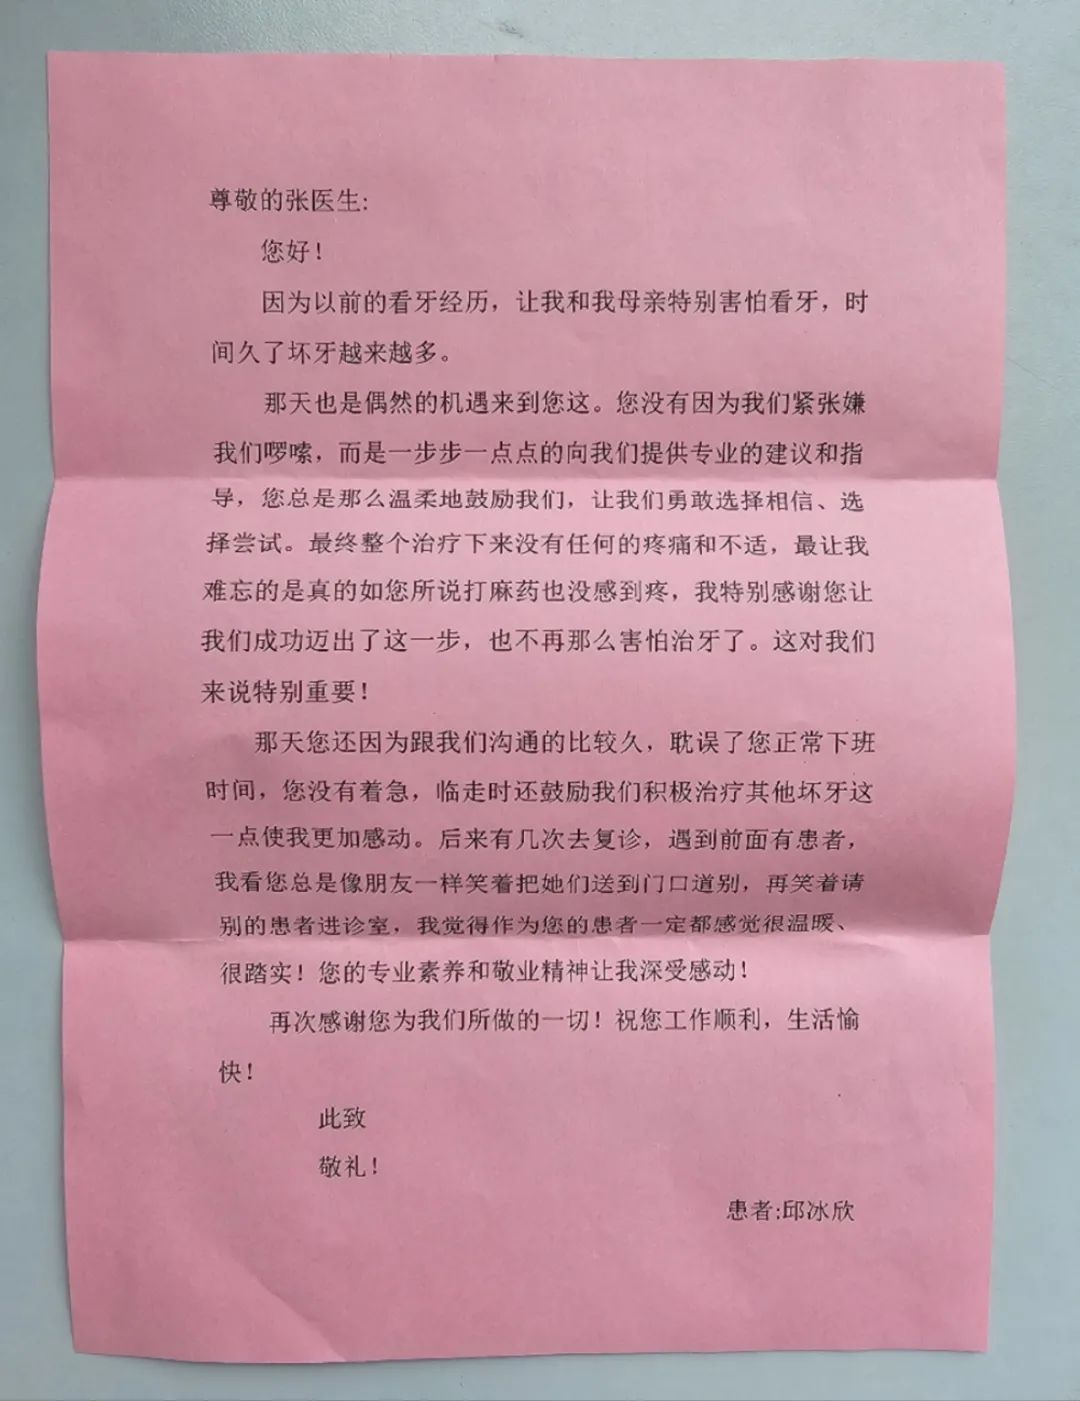 尊敬的张医生:
您好！
因为以前的看牙经历，让我和我母亲特别害怕看牙，时
间久了坏牙越来越多。
那天也是偶然的机遇来到您这。您没有因为我们紧张嫌
我们啰嗦，而是一步步一点点的向我们提供专业的建议和指
导，您总是那么温柔地鼓励我们，让我们勇敢选择相信、选
择尝试。最终整个治疗下来没有任何的疼痛和不适，最让我
难忘的是真的如您所说打麻药也没感到疼，我特别感谢您让
我们成功迈出了这一步，也不再那么害怕治牙了。这对我们
来说特别重要！
那天您还因为跟我们沟通的比较久，耽误了您正常下班
时间，您没有着急，临走时还鼓励我们积极治疗其他坏牙这
一点使我更加感动。后来有几次去复诊，遇到前面有患者，
我看您总是像朋友一样笑着把她们送到门口道别，再笑着请
别的患者进诊室，我觉得作为您的患者一定都感觉很温暖、
很踏实！您的专业素养和敬业精神让我深受感动！
再次感谢您为我们所做的一切！祝您工作顺利，生活愉
快！
此致
敬礼！
患者:邱冰欣